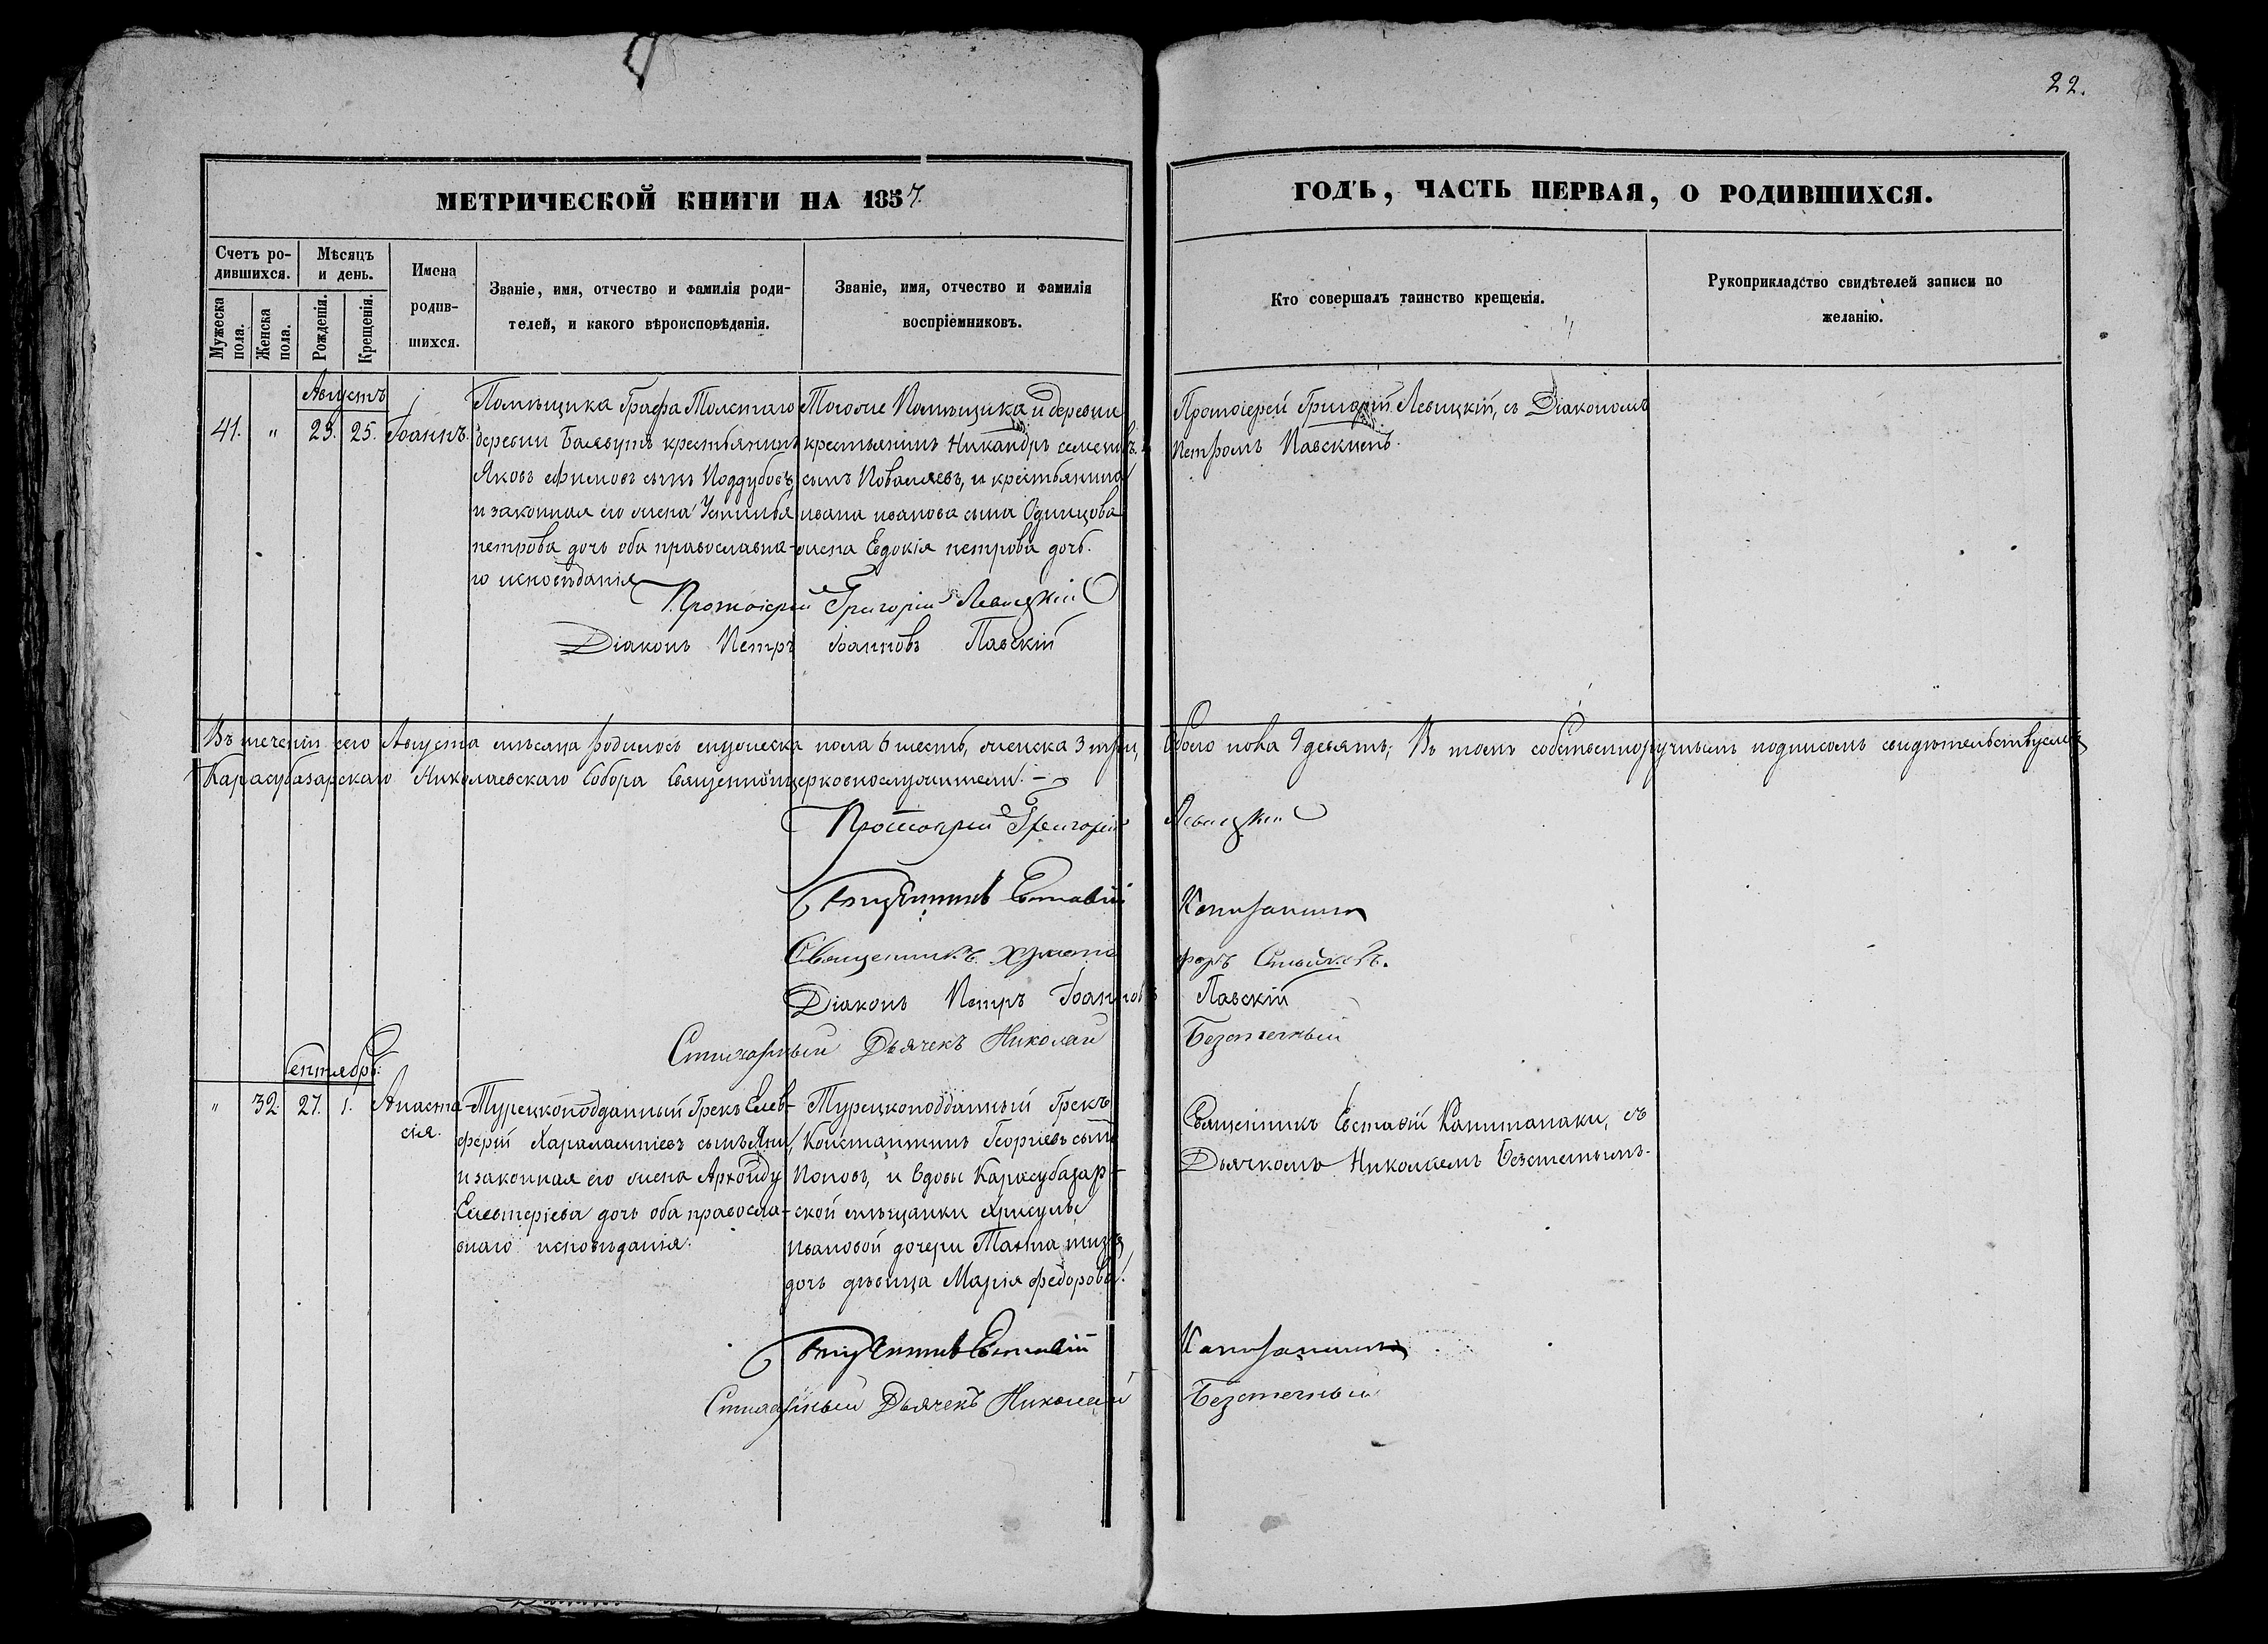 22.
МЕТРИЧЕСКОЙ КНИГИ НА 1857.
ГОДЪ, ЧАСТЬ ПЕРВАЯ, О РОДИВШИХСЯ.
Счетъ ро-
дившихся.
Мѣсяцъ
и день.
Мужеска
пола.
Женска
пола.
Рожденія.
Крещенія.
Имена
родив-
шихся.
Званіе, имя, отчество и фамилія роди-
телей, и какого вѣроисповѣданія.
Званіе, имя, отчество и фамилія
воспріемниковъ.
Кто совершалъ таинство крещенія.
Рукоприкладство свидѣтелей записи по
желанію.
Августъ
41. " 23. 25. Іоаннъ.
Помѣщика Графа Толстаго
деревни крестьянинъ
Яковъ Ефимовъ сынъ Поддубовъ
и законная его жена Устинья
петрова дочь оба православна-
го исповѣданія
Тогоже Помѣщика и деревни
крестьянинъ Никандръ семеновъ
сынъ и крестьянина
ивана иванова сына Одинцова
жена Евдокія петрова дочь.
Протоіерей Григорій Левицкій, съ Діакономъ
Петромъ Павскимъ.
Протоіерей Григорій Левицкій
Діаконъ Петръ Іоанновъ Павскій
Въ теченіи сего Августа мѣсяца родилось мужеска пола 6 шесть, женска 3 три, Обоего пола 9 девять; Въ томъ собственноручнымъ подписомъ свидѣтельствуемъ
Карасубазарскаго Николаевскаго Собора Священноцерковнослужители. —
Протоіерей Григорій Левицкій
Священникъ Евставій Капитанаки
Священникъ Христофоръ
Діаконъ Петръ Іоанновъ Павскій
Стихарный Дьячекъ Николай Безстечный
Сентябрь.
" 32. 27. 1. Анаста-
сія.
Турецкоподданный Грекъ Елев-
ферій Харалампіевъ сынъ Яни,
и законная его жена Архонду
Елевтеріева дочь оба правосла-
внаго исповѣданія.
Турецкоподданный Грекъ
Константинъ Георгіевъ сынъ
Поповъ, и вдовы Карасубазар-
ской мѣщанки Хрисулы
ивановой дочери
дочь дѣвица Марія федорова.
Священникъ Евставій Капитанаки, съ
Дьячкомъ Николаемъ Безстечнымъ.
Священникъ Евставій Капитанаки
Стихарный Дьячекъ Николай Безстечный